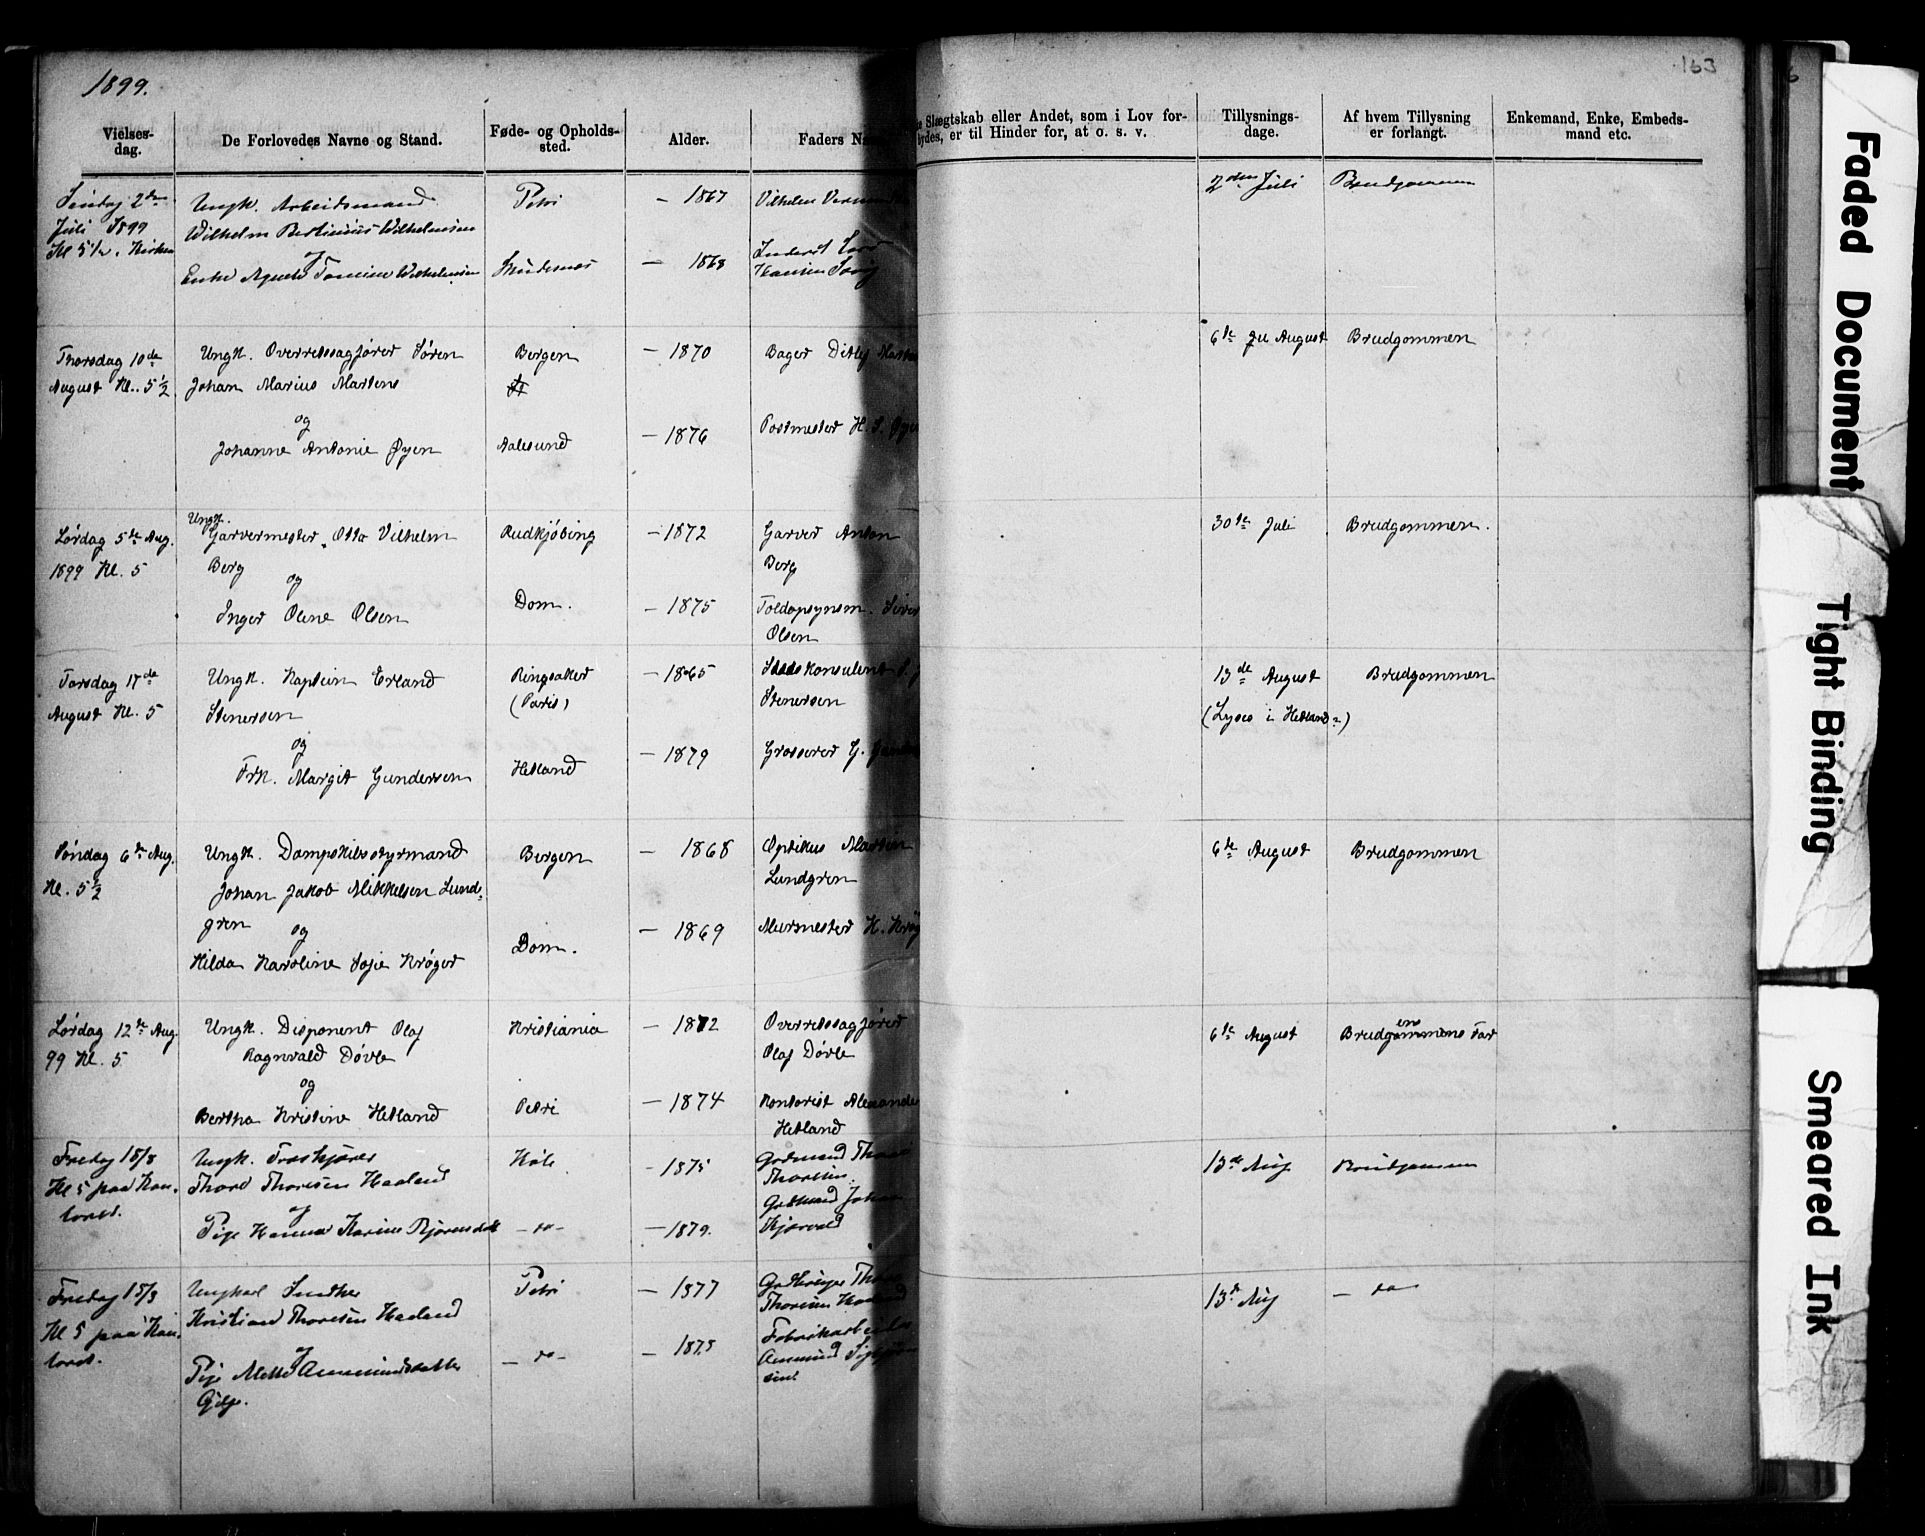 1899.
163
Vielses-dag.
De Forlovedes Navne og Stand.
Føde- og Opholds-sted.
Alder.
Faders Na
Slægtskab eller Andet, som i Lov for-
bydes, er til Hinder for, at o. s. v.
Tillysnings-dage.
Af hvem Tillysning er forlangt.
Enkemand, Enke, Embeds-mand etc.
Søndag 2den
Juli 1899
Kl 5½. Kirken
Ungk. Arbeidsmand
Wilhelm Bertinius Wilhelmsen
og
Enke Agnete Tomine Wilhelmsen
Petri
Skudesnæs
– 1867
– 1868
Vilhelm
Hansen
2den Juli
Brudgommen
Thorsdag 10de
August Kl. 5½
Ungk. Overretssagfører Søren
Johan Marius Martens
og
Johanne Antonie Øyen
Bergen
Aalesund
– 1870
– 1876
Bager Ditlef
Postmester H. S. Øye
6te August
Brudgommen
Lørdag 5te Aug.
1899 Kl. 5
Ungk.
Garvermester Otto Vilhelm
Berg
og
Inger Oline Olsen
Rudkjøbing
Dom.
– 1872
– 1875
Garver Anton
Berg
Toldopsynsm. Siver
Olsen
30te Juli
Brudgommen.
Torsdag 17de
August Kl. 5
Ungk. Kaptein Erland
Stenersen
og
Frk. Margit Gundersen
Ringsaker
(Paris)
Hetland
– 1865
– 1879
Statskonsulent
Stenersen
Grosserer G.
13de August
(Lyses i Hetland)
Brudgommen
Søndag 6te Aug.
Kl. 5½
Ungk. Dampskibsstyrmand
Johan Jakob Mikkelsen Lund-
gren
og
Hilda Karoline Sofie Krøger
Bergen
Dom.
– 1868
– 1869
Optikus Martin
Lundgren
Murmester H. Krøg
6te August
Brudgommen
Lørdag 12te Aug.
99 Kl. 5
Ungk. Disponent Olaf
Ragnvald Døvle
og
Bertha Kristine Hetland
Kristiania
Petri
– 1872
– 1874
Overretssagfører
Olaf Døvle
Kontorist Alexander
Hetland
6te August
Brudgommens Far
Fredag 18/8
Kl 5 paa Kon-
toret.
Ungk.
Thore Thoresen Haaland
og
Pige Hanna Karine
Høle
– do –
– 1875
– 1879.
Gaardmand
Thoresen
Gaardmand Johan
13de Aug
Brudgommen
Fredag 18/8
Kl 5 paa Kon-
toret.
Ungkarl
Kristian Thoresen Haaland
og
Pige Mette Aanensdatter
Gilje.
Petri
– do –
– 1877
– 1875
Thoresen
Fabrikarbeider
13de Aug
– do –
Faded Document
Tight Binding
Smeared Ink